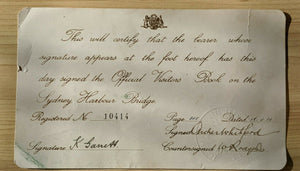 This will certify that the bearer whose
signature appears at the foot hereof has this
day signed the Official Visitors' Book on the
Sydney Harbour Bridge
Registered No 10414 Page Dated
Signed
Signature K Garrett Countersigned